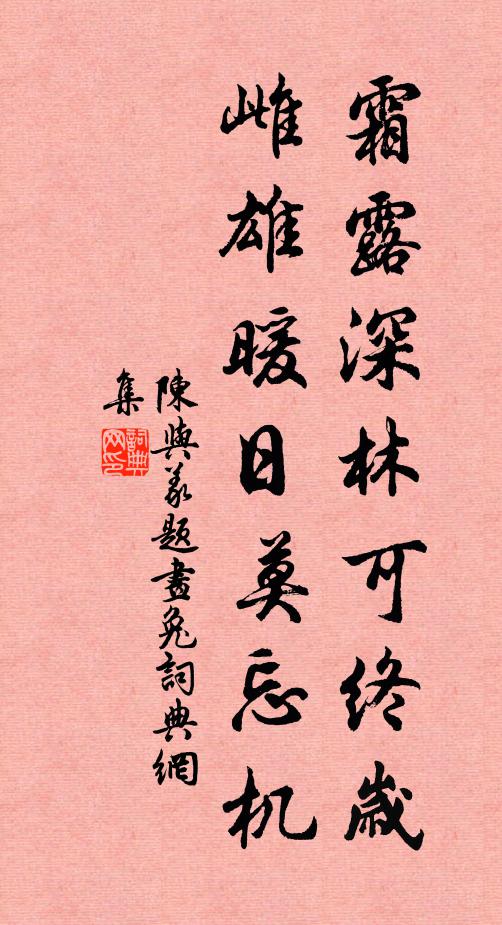 霜露深林可终歲
雌雄暖日莫忘机
陳與義題畫兔詞典網
集
詞典网印